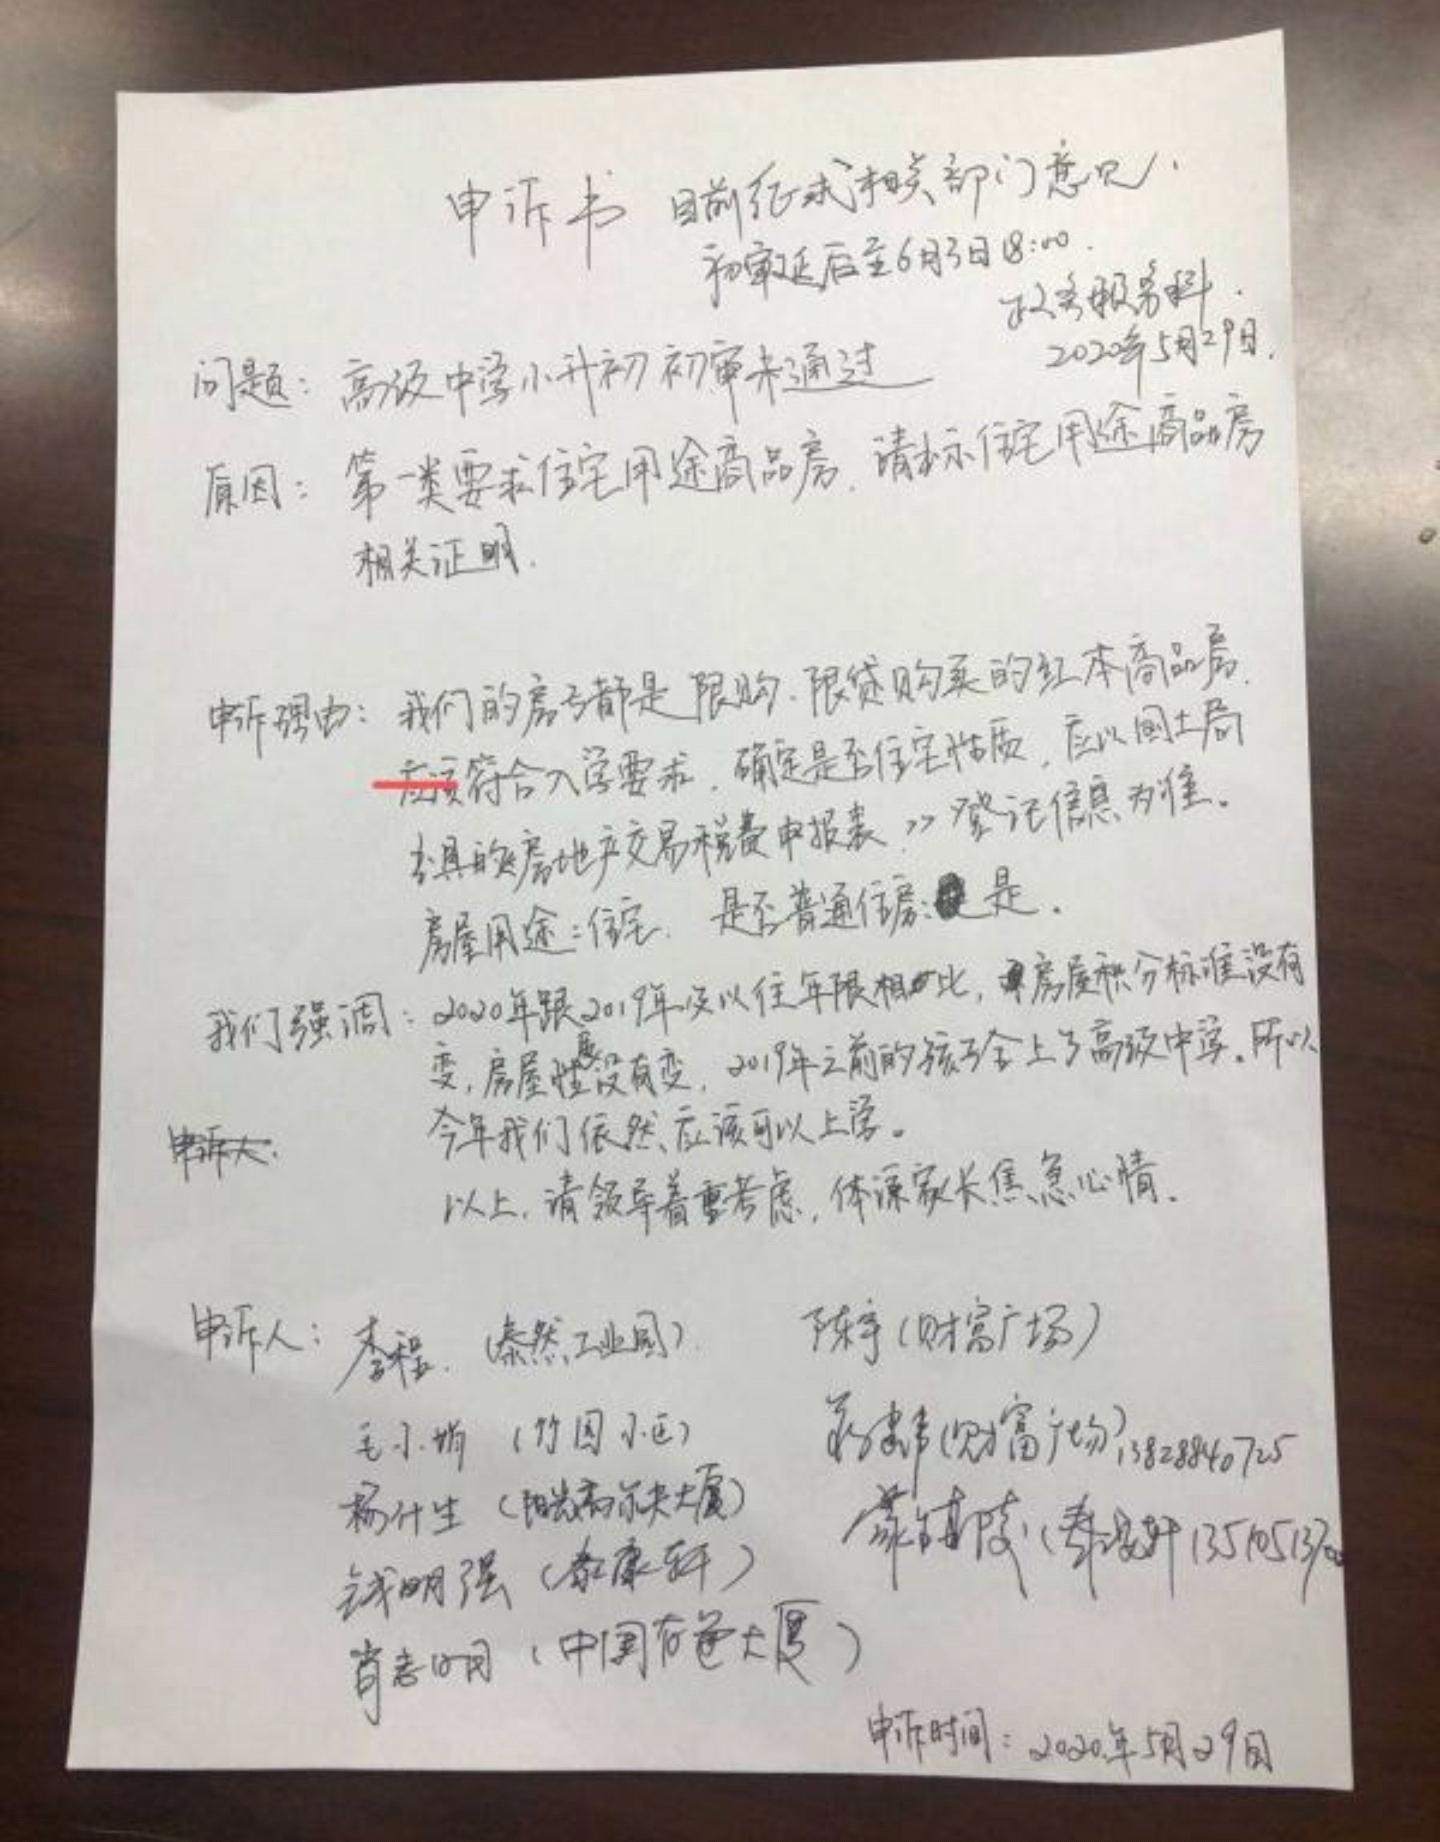 申诉书 目前征求相关部门意见.
初审延后至6月3日18:00.
政务服务科.
2020年5月29日.
问题: 高级中学小升初初审未通过
原因: 第一类要求住宅用途商品房. 请标住宅用途商品房
相关证明.
申诉理由: 我们的房子都是限购.限贷购买的红本商品房.
应该符合入学要求. 确定是否住宅性质, 应以国土局
出具的房地产交易税费申报表, >> 登记信息为准。
房屋用途:住宅. 是否普通住房: 是.
我们强调: 2020年跟2019年及以往年限相比, 房屋积分标准没有
变, 房屋性质没有变, 2019年之前的孩子全上了高级中学。所以
今年我们依然应该可以上学。
申诉人:
以上. 请领导着重考虑, 体谅家长焦急心情.
申诉人: 李程. (泰然工业园). 陈宇(财富广场)
毛小娟 (竹园小区) (财富广场) 13828840725
杨什生 (阳光高尔夫大厦)
钱明强 (泰康轩) 135105137
肖志明 (中国有色大厦)
申诉时间: 2020年5月29日